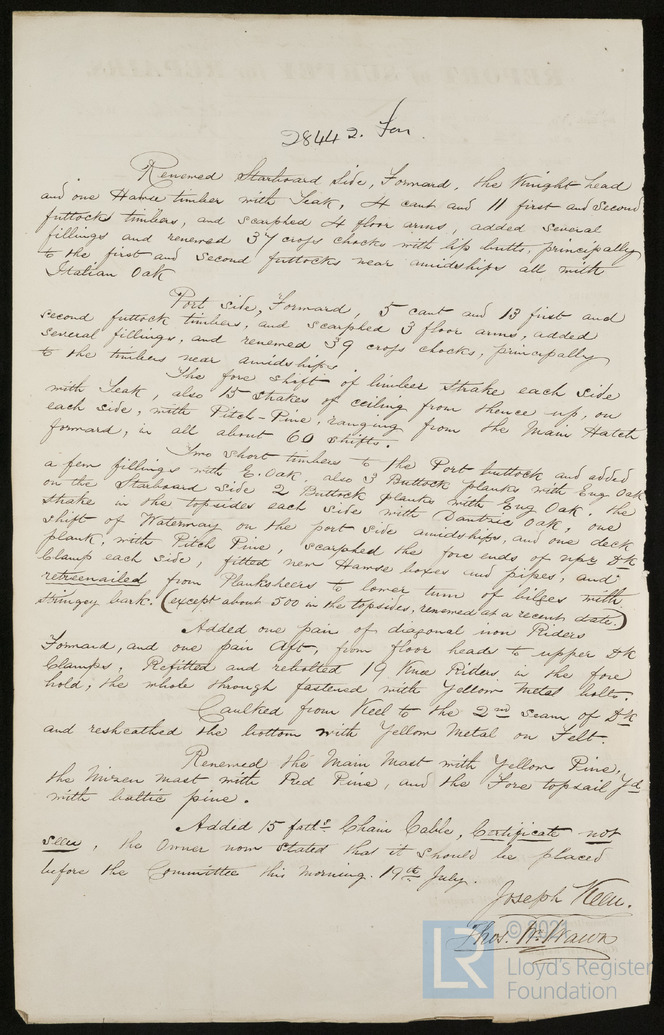 28442. Iron.
Renewed Starboard Side, Forward, the Knight head
and one Hawse timber with Teak, 4 cant and 11 first and second
futtock timbers, and scarphed 4 floor arms, added several
fillings and renewed 37 crops chocks with lip butts, principally
to the first and second futtocks near amidships all with
Italian Oak
Port side, Forward, 5 cant and 13 first and
second futtock timbers, and scarphed 3 floor arms, added
several fillings, and renewed 39 crops chocks, principally
to the timbers near amidships.
The fore shift of limber strake each side
with Teak, also 15 strakes of ceiling from thence up, on
each side, with Pitch-Pine, ranging from the Main Hatch
forward, in all about 60 shifts.
Two short timbers to the Port buttock and added
a few fillings with E. Oak, also 3 Buttock planks with Eng Oak
on the Starboard side 2 Buttock planks with Eng Oak, the
strake in the topsides each side with Dantzic Oak, one
shift of Waterway on the port side amidships, and one deck
plank, with Pitch Pine, scarphed the fore ends of uppr Dk
Clamp each side, fitted new Hawse boxes and pipes, and
retreenailed from Planksheers to lower turn of bilges with
stringey bark. (except about 500 in the topsides, renewed at a recent date)
Added one pair of diagonal iron Riders
Forward, and one pair Aft, from floor heads to upper Dk
Clamps. Refitted and rebolted 19 Knee Riders in the fore
hold, the whole through fastened with Yellow Metal bolts.
Caulked from Keel to the 2nd Seam of Dk
and resheathed the bottom with Yellow Metal on Felt.
Renewed the Main Mast with Yellow Pine,
the Mizen mast with Red Pine, and the Fore topsail Yd
with baltic pine.
Added 15 faths Chain Cable, Certificate not
seen, the Owner now stated that it should be placed
before the Committee this morning. 19th July.
Joseph Keen.
Thos. Wm Hawn
© 2021
LR
Lloyd's Register
Foundation